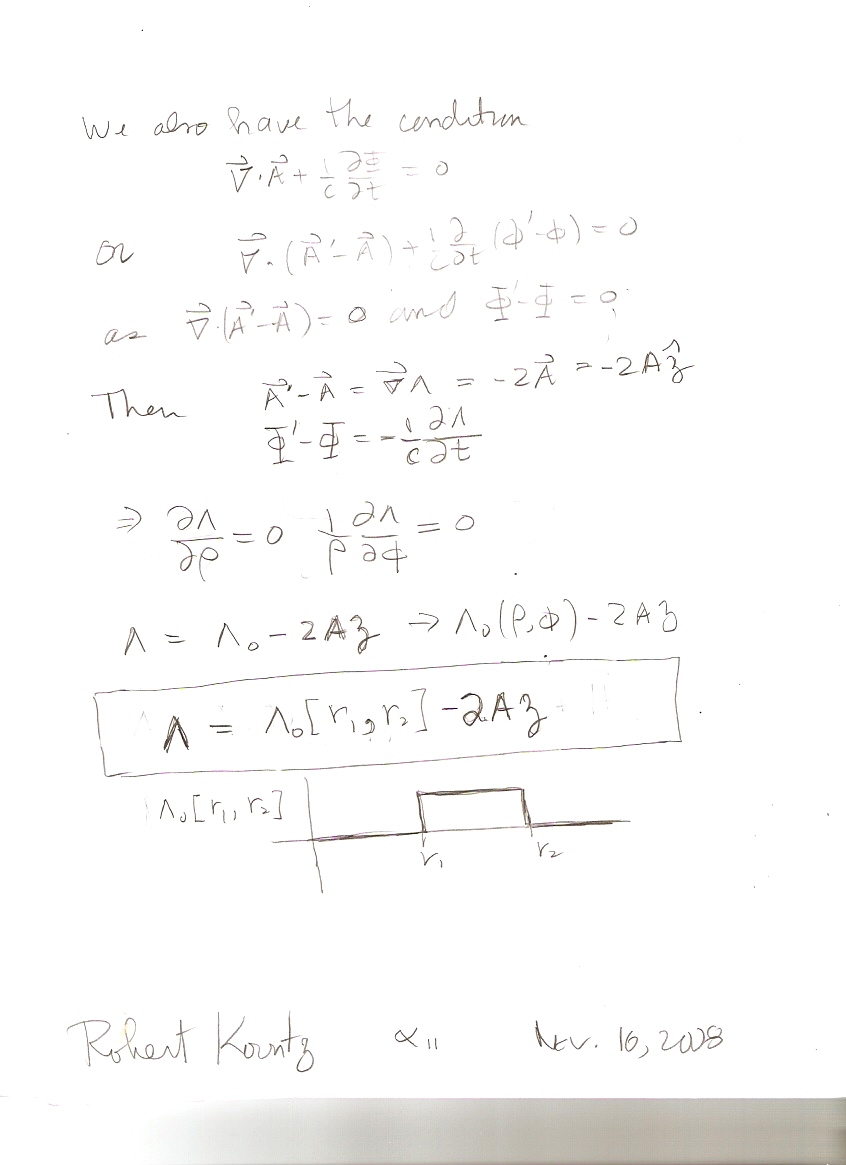 We also have the condition
∇⃗·A⃗ + 1/c ∂Φ/∂t = 0
or ∇⃗·(A⃗'-A⃗) + 1/c ∂/∂t (Φ'-Φ) = 0
as ∇⃗·(A⃗'-A⃗) = 0 and Φ'-Φ = 0;
Then A⃗'-A⃗ = ∇⃗Λ = -2A⃗ = -2Aẑ
Φ'-Φ = -1/c ∂Λ/∂t
⇒ ∂Λ/∂ρ = 0 1/ρ ∂Λ/∂φ = 0
Λ = Λ₀ - 2Az → Λ₀(ρ,φ) - 2Az
Λ = Λ₀[r₁, r₂] - 2Az
Λ₀[r₁, r₂]
r₁ r₂
Robert Kountz α 11 Nov. 16, 2008